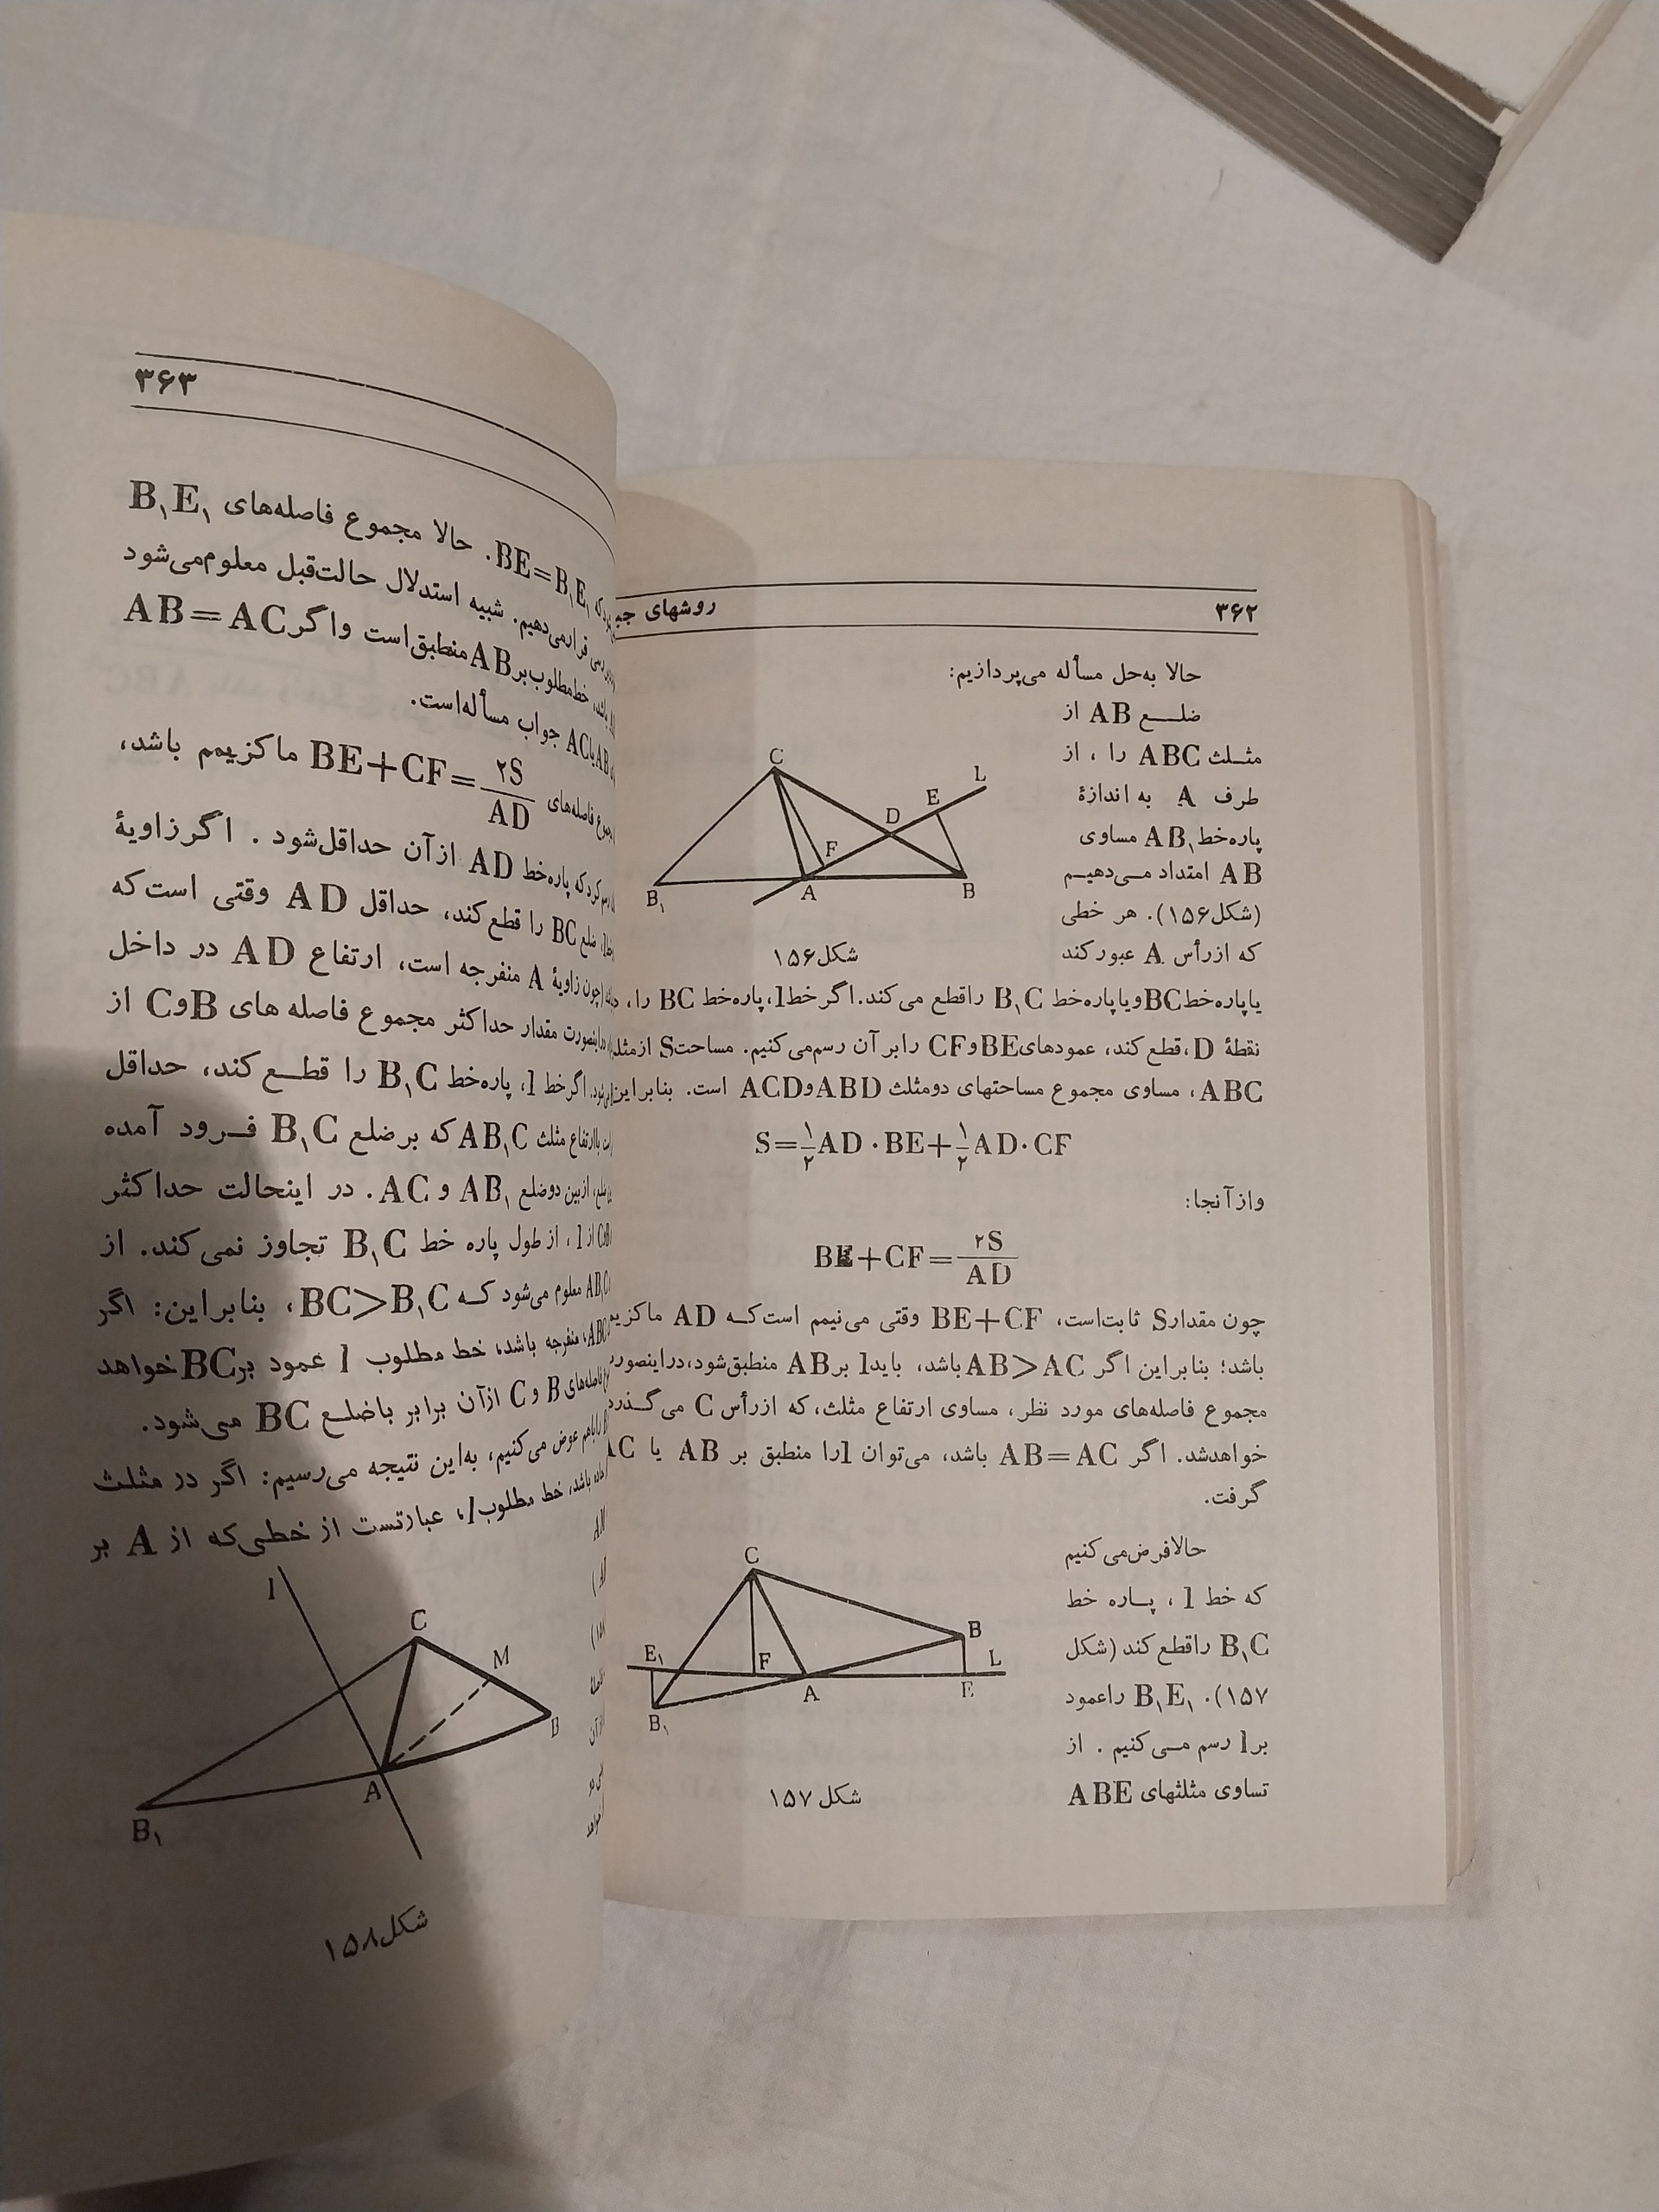 ۳۶۲
روشهای
حالا به‌حل مسأله می‌پردازیم:
ضلع AB از
مثلث ABC را ، از
طرف A به اندازهٔ
پاره‌خط AB۱ مساوی
AB امتداد می‌دهیم
(شکل۱۵۶). هر خطی
که ازرأس A عبورکند
C
L
E
D
F
B۱
A
B
شکل۱۵۶
یاپاره‌خط BC ویاپاره‌خط B۱C راقطع می‌کند. اگر خط l، پاره‌خط BC را، در
نقطهٔ D، قطع کند، عمودهای BE و CF رابر آن رسم‌می‌کنیم. مساحت S ازمثلث
ABC، مساوی مجموع مساحتهای دومثلث ABD و ACD است. بنابراین
S=۱/۲AD·BE+۱/۲AD·CF
وازآنجا:
BE+CF=۲S/AD
چون مقدار S ثابت‌است، BE+CF وقتی می‌نیمم است‌که AD ماکزیمم
باشد؛ بنابراین اگر AB>AC باشد، باید l بر AB منطبق‌شود، دراینصورت
مجموع فاصله‌های مورد نظر، مساوی ارتفاع مثلث، که ازرأس C می‌گذرد
خواهدشد. اگر AB=AC باشد، می‌توان l را منطبق بر AB یا AC
گرفت.
حالافرض‌می‌کنیم
که خط l ، پاره خط
B۱C راقطع کند (شکل
۱۵۷). B۱E۱ راعمود
بر l رسم می‌کنیم . از
تساوی مثلثهای ABE
C
B
E۱
F
L
A
E
B۱
شکل ۱۵۷
۳۶۳
BE=B۱E۱. حالا مجموع فاصله‌های B۱E۱
قرارمی‌دهیم. شبیه استدلال حالت‌قبل معلوم‌می‌شود
باشد، خط‌مطلوب‌بر AB منطبق‌است واگر AB=AC
AB یا AC جواب مسأله‌است.
فاصله‌های BE+CF=۲S/AD ماکزیمم باشد،
که پاره‌خط AD ازآن حداقل‌شود . اگرزاویهٔ
ضلع BC را قطع‌کند، حداقل AD وقتی است‌که
چون زاویهٔ A منفرجه است، ارتفاع AD در داخل
اینصورت مقدار حداکثر مجموع فاصله های B و C از
اگرخط l، پاره‌خط B۱C را قطع کند، حداقل
باارتفاع مثلث AB۱C که برضلع B۱C فرود آمده
ازبین دوضلع AB۱ و AC. در اینحالت حداکثر
از l ، از طول پاره خط B۱C تجاوز نمی‌کند. از
معلوم می‌شود که BC>B۱C، بنابراین: اگر
منفرجه باشد، خط مطلوب l عمود بر BC خواهد
فاصله‌های B و C ازآن برابر باضلع BC می‌شود.
باهم عوض می‌کنیم، به‌این نتیجه می‌رسیم: اگر در مثلث
باشد، خط مطلوب l، عبارتست از خطی‌که از A بر
l
C
M
B
A
B۱
شکل۱۵۸